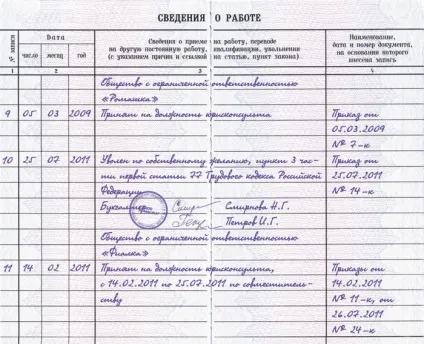 СВЕДЕНИЯ О РАБОТЕ
№ записи
Дата
число месяц год
Сведения о приеме на работу, переводе
на другую постоянную работу, квалификации, увольнении
(с указанием причин и ссылкой на статью, пункт закона)
Наименование,
дата и номер документа,
на основании которого
внесена запись
1 2 3 4
Общество с ограниченной ответственностью
«Ромашка»
9 05 03 2009 Принят на должность юрисконсульта Приказ от
05.03.2009
№ 7-к
10 25 07 2011 Уволен по собственному желанию, пункт 3 час- Приказ от
ти первой статьи 77 Трудового кодекса Российской 25.07.2011
Федерации № 14-к
Бухгалтер Смирнова Н.Г.
Петров И.Г.
Общество с ограниченной ответственностью
«Фиалка»
11 14 02 2011 Принят на должность юрисконсульта, Приказы от
с 14.02.2011 по 25.07.2011 по совместитель- 14.02.2011
ству № 11-к, от
26.07.2011
№ 24-к